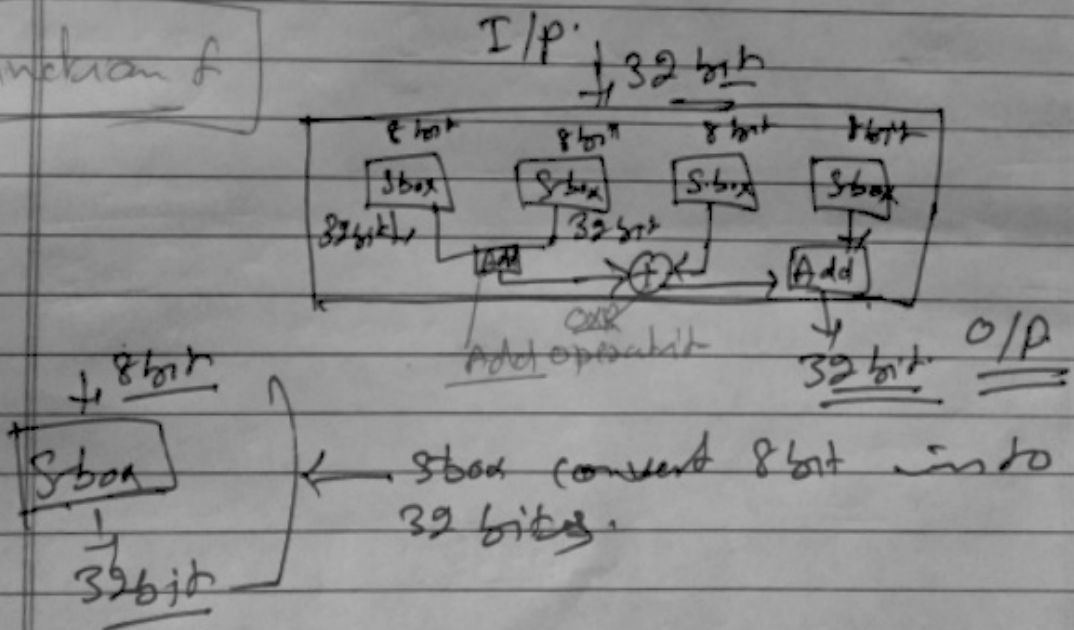 I/p.
32 bit
function f
8 bit 8 bit 8 bit 8 bit
Sbox S-box S-box Sbox
32 bit 32 bit
Add Add
Add operatn
32 bit O/P
8 bit
S-box
32bit
Sbox convert 8 bit into
32 bits.